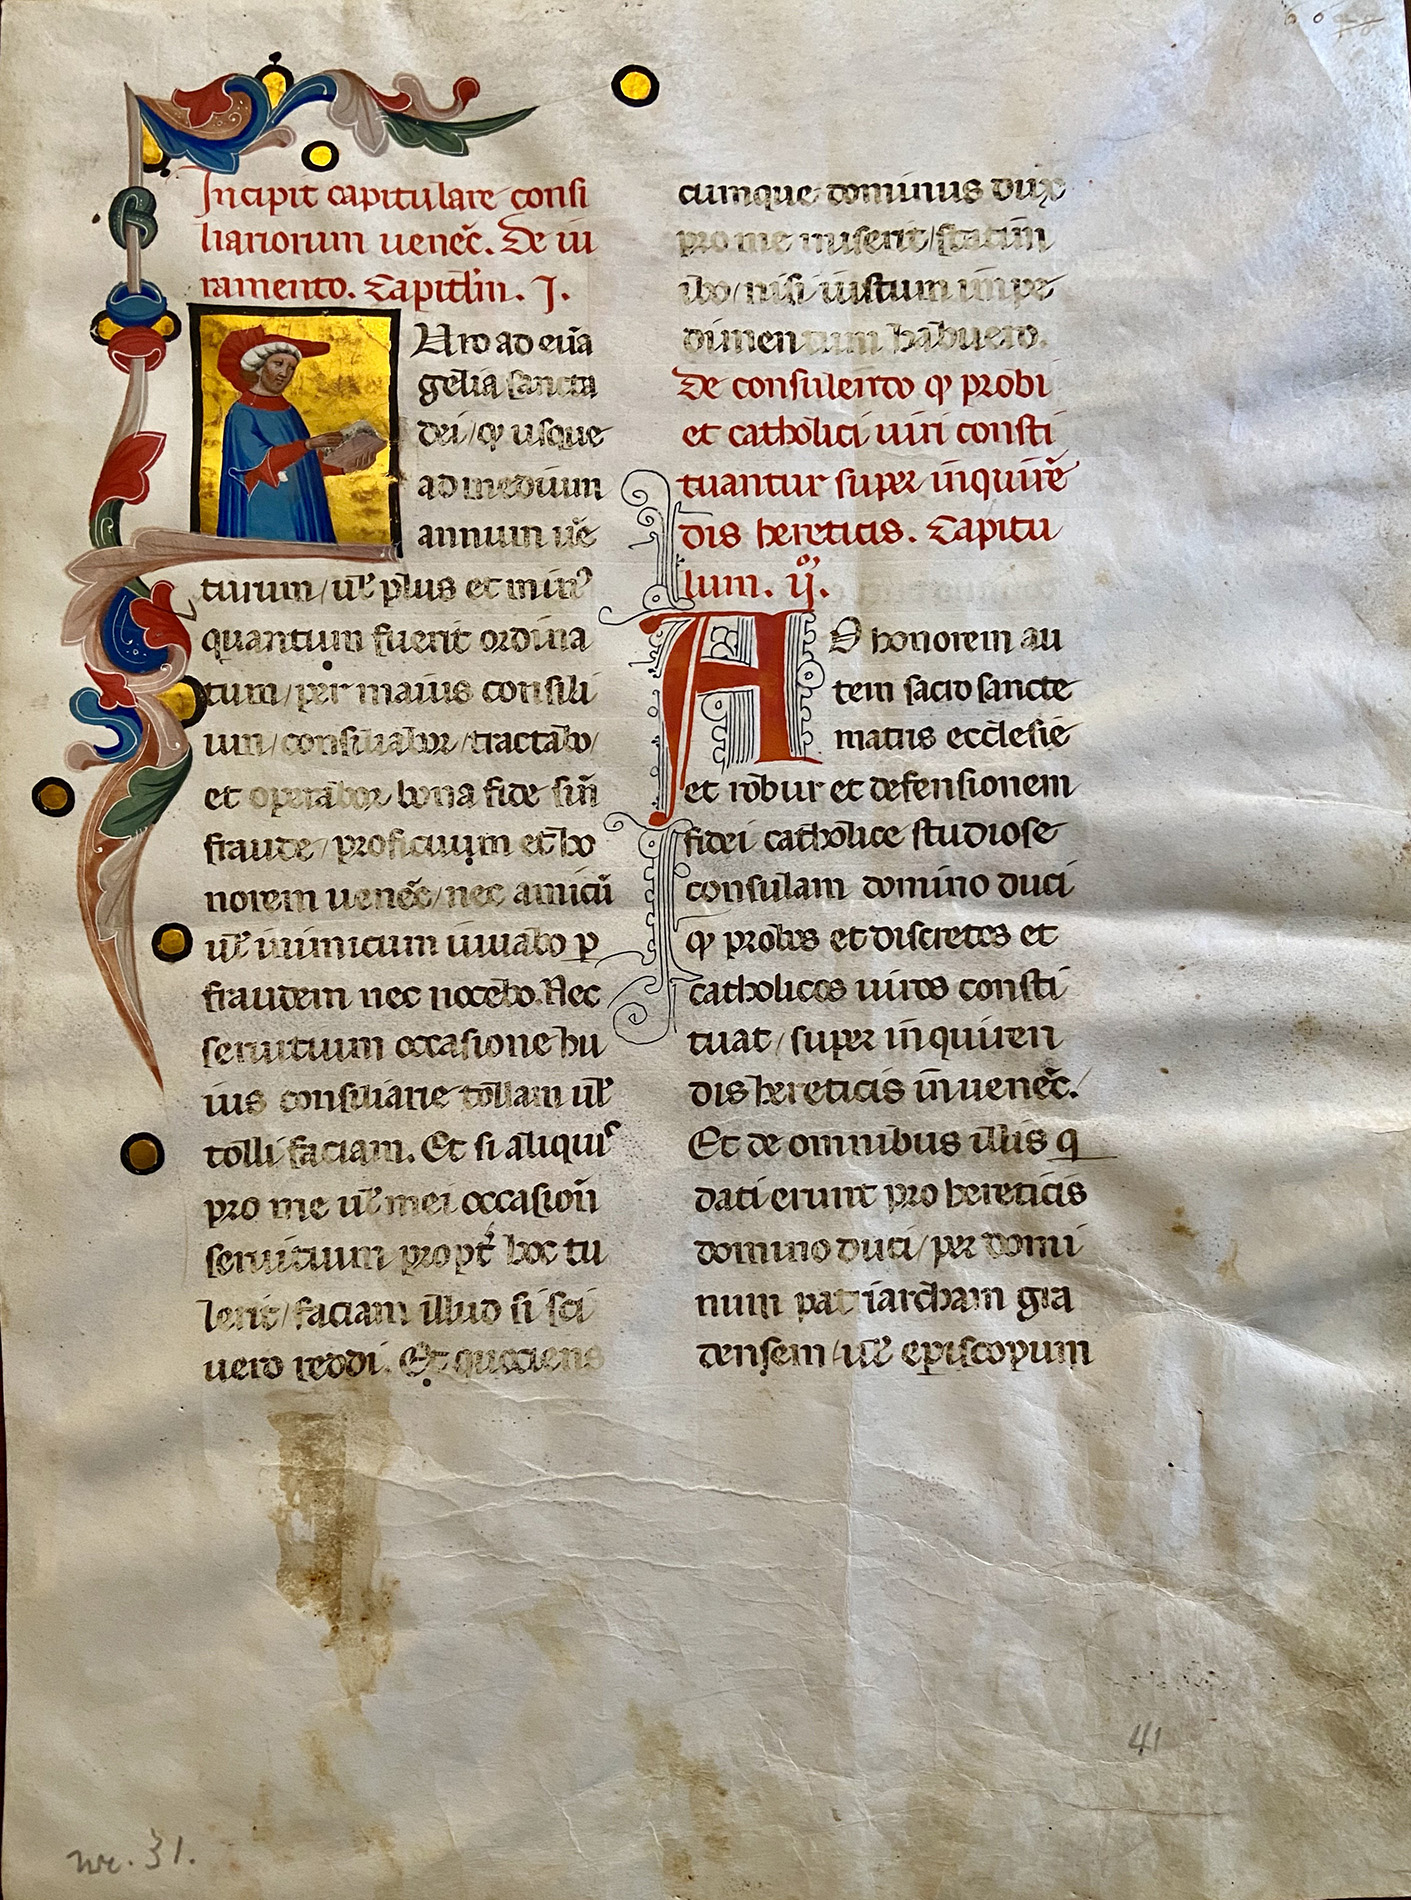 Incipit capitulare consi
liariorum uenec̄. De iu
ramento. Capitl̄m. I.
Uro ad eua̅
gelia sancta
dei / qꝫ usque
ad medium
annum ue̅
turum / ul̄ plus et minꝰ
quantum fuerit ordina
tum / per maius consili
um / consiliabor / tractabo /
et operabor bona fide sin̄
fraude / proficuum et ho
norem uenec̄ / nec amicū
ul̄ inimicum iuuabo p̲
fraudem nec nocebo. Nec
seruitium occasione hu
ius consiliarie tollam ul̄
tolli faciam. Et si aliquis
pro me ul̄ mei occasion̄
seruitium propt̄ hoc tu
lerit / faciam illud si sci
uero reddi. Et quociens
cumque dominus dux
pro me miserit / statim
ibo / nisi iustum impe
dimentum habuero.
De consulendo qꝫ probi
et catholici uiri consti
tuantur super inquire̅
dis hereticis. Capitu
lum. ij.
AD honorem au
tem sacro sancte
matris ecclesie
et robur et defensionem
fidei catholice studiose
consulam domino duci
qꝫ probos et discretos et
catholicos uiros consti
tuat / super inquiren
dis hereticis in uenec̄.
Et de omnibus illis q̲
dati erunt pro hereticis
domino duci / per domi
num patriarcham gra
densem / ul̄ episcopum
41
nr. 31.